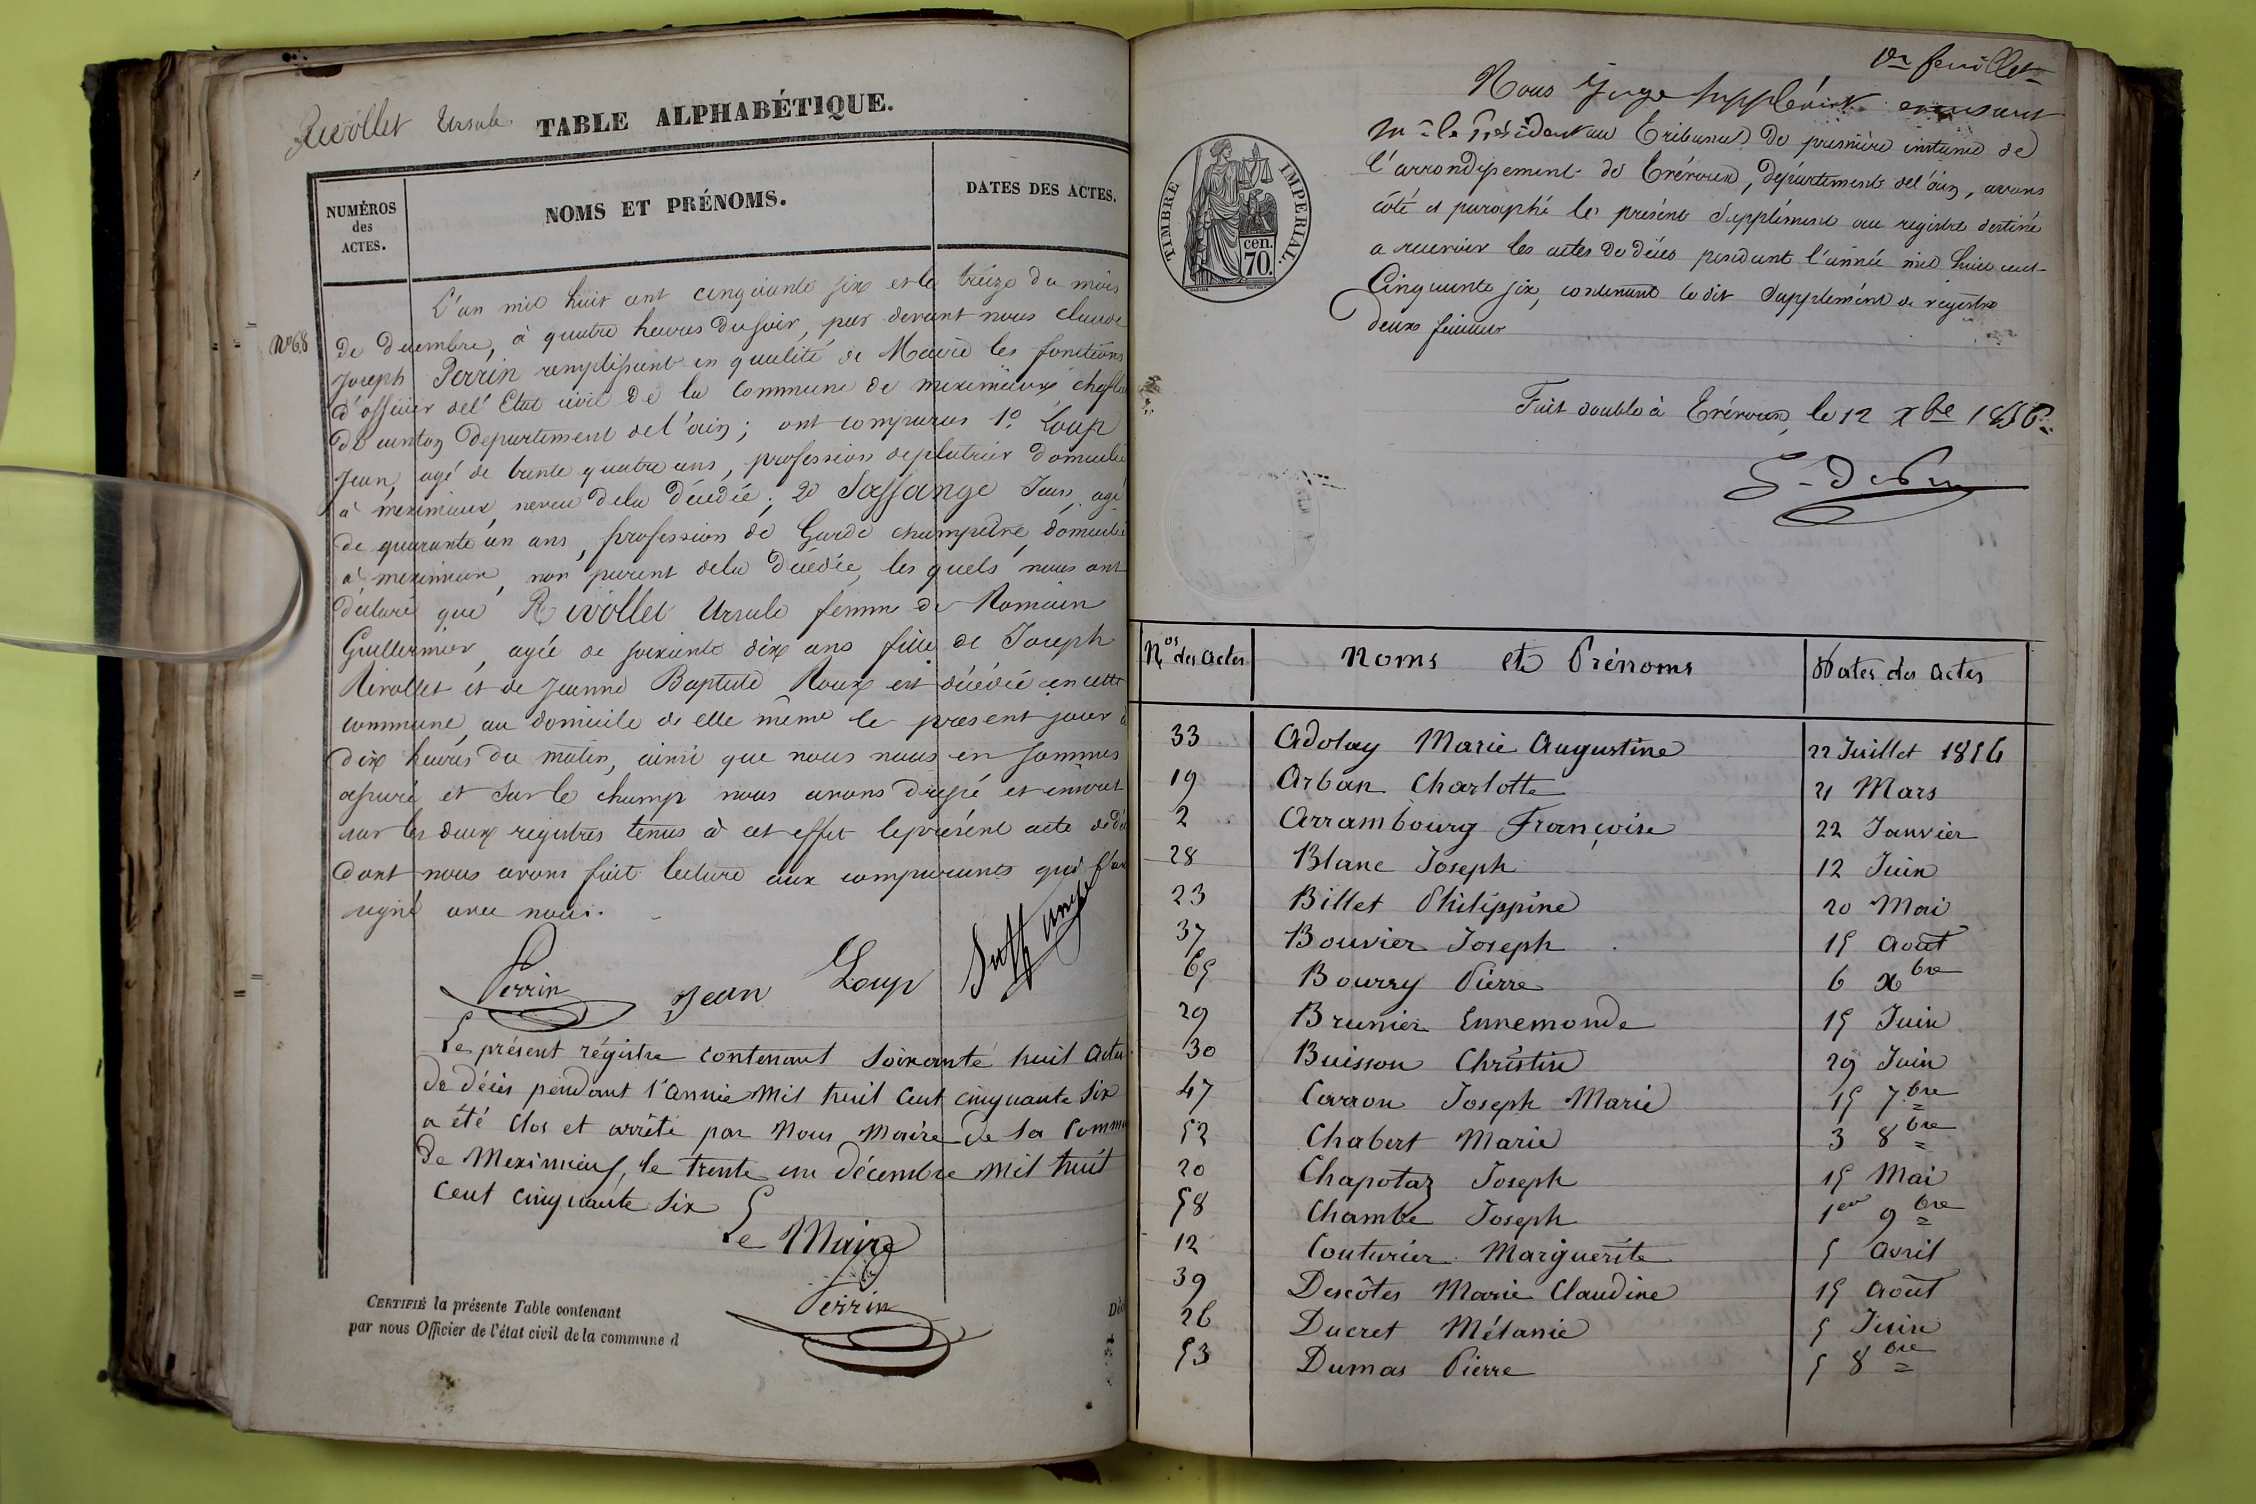 Revollet Ursule
TABLE ALPHABÉTIQUE.
NUMÉROS
des
ACTES.
NOMS ET PRÉNOMS.
DATES DES ACTES.
N° 68
L'an mil huit cent cinquante six et le treize du mois
de decembre, à quatre heures du soir, par devant nous Claude
Joseph Perrin remplissant en qualité de Maire les fonctions
d'officier de l'Etat civil de la commune de meximieux chef lieu
de canton departement de l'ain; ont comparus 1° Loup
Jean, agé de trente quatre ans, profession de platrier domicilié
à meximieux, neveu de la décédée; 2° Saffange Jean, agé
de quarante un ans, profession de Garde champetre, domicilié
à meximieux, non parent de la décédée, les quels nous ont
déclaré que Rivollet Ursule femme de Romain
Guillermier, agée de soixante dix ans fille de Joseph
Rivollet et de Jeanne Baptiste Roux est décédée en cette
commune, au domicile de elle même le present jour à
dix heures du matin, ainsi que nous nous en sommes
assuré et sur le champ nous avons dressé et inscrit
sur les deux registres tenus à cet effet le présent acte de dé
dont nous avons fait lecture aux comparants qui l'on
signé avec nous.
Perrin Jean Loup Saffange
Le présent régistre contenant soixante huit actes
de décès pendant l'année mil huit cent cinquante six
a été clos et arrêté par Nous Maire de la Comm
de Meximieux, le trente un décembre mil huit
cent cinquante six
Le Maire
Perrin
CERTIFIÉ la présente Table contenant
par nous Officier de l'état civil de la commune d
1er feuillet
Nous Juge Suppléant
le Président au Tribunal de première instance de
l'arrondissement de Trévoux, département de l'ain, avons
côté et paraphé le présent Supplément au registre destiné
a recevoir les actes de décès pendant l'année mil huit cent
Cinquante six, contenant le dit Supplément de registre
deux feuillets
Fait double à Trévoux, le 12 Xbre 1856.
TIMBRE IMPERIAL.
cen.
70.
Nos des actes
Noms et Prénoms
Dates des actes
33 Adolay Marie Augustine 22 Juillet 1856
19 Arban Charlotte 21 Mars
2 Arrambourg Françoise 22 Janvier
28 Blanc Joseph 12 Juin
23 Billet Philippine 20 Mai
37 Bouvier Joseph 15 Août
65 Bourry Pierre 6 Xbre
29 Brunier Ennemonde 15 Juin
30 Buisson Christine 29 Juin
47 Carron Joseph Marie 15 7bre
52 Chabert Marie 3 8bre
20 Chapotaz Joseph 15 Mai
58 Chambe Joseph 1er 9bre
12 Couturier Marguerite 5 avril
39 Descôtes Marie Claudine 15 Août
26 Ducret Mélanie 5 Juin
53 Dumas Pierre 5 8bre